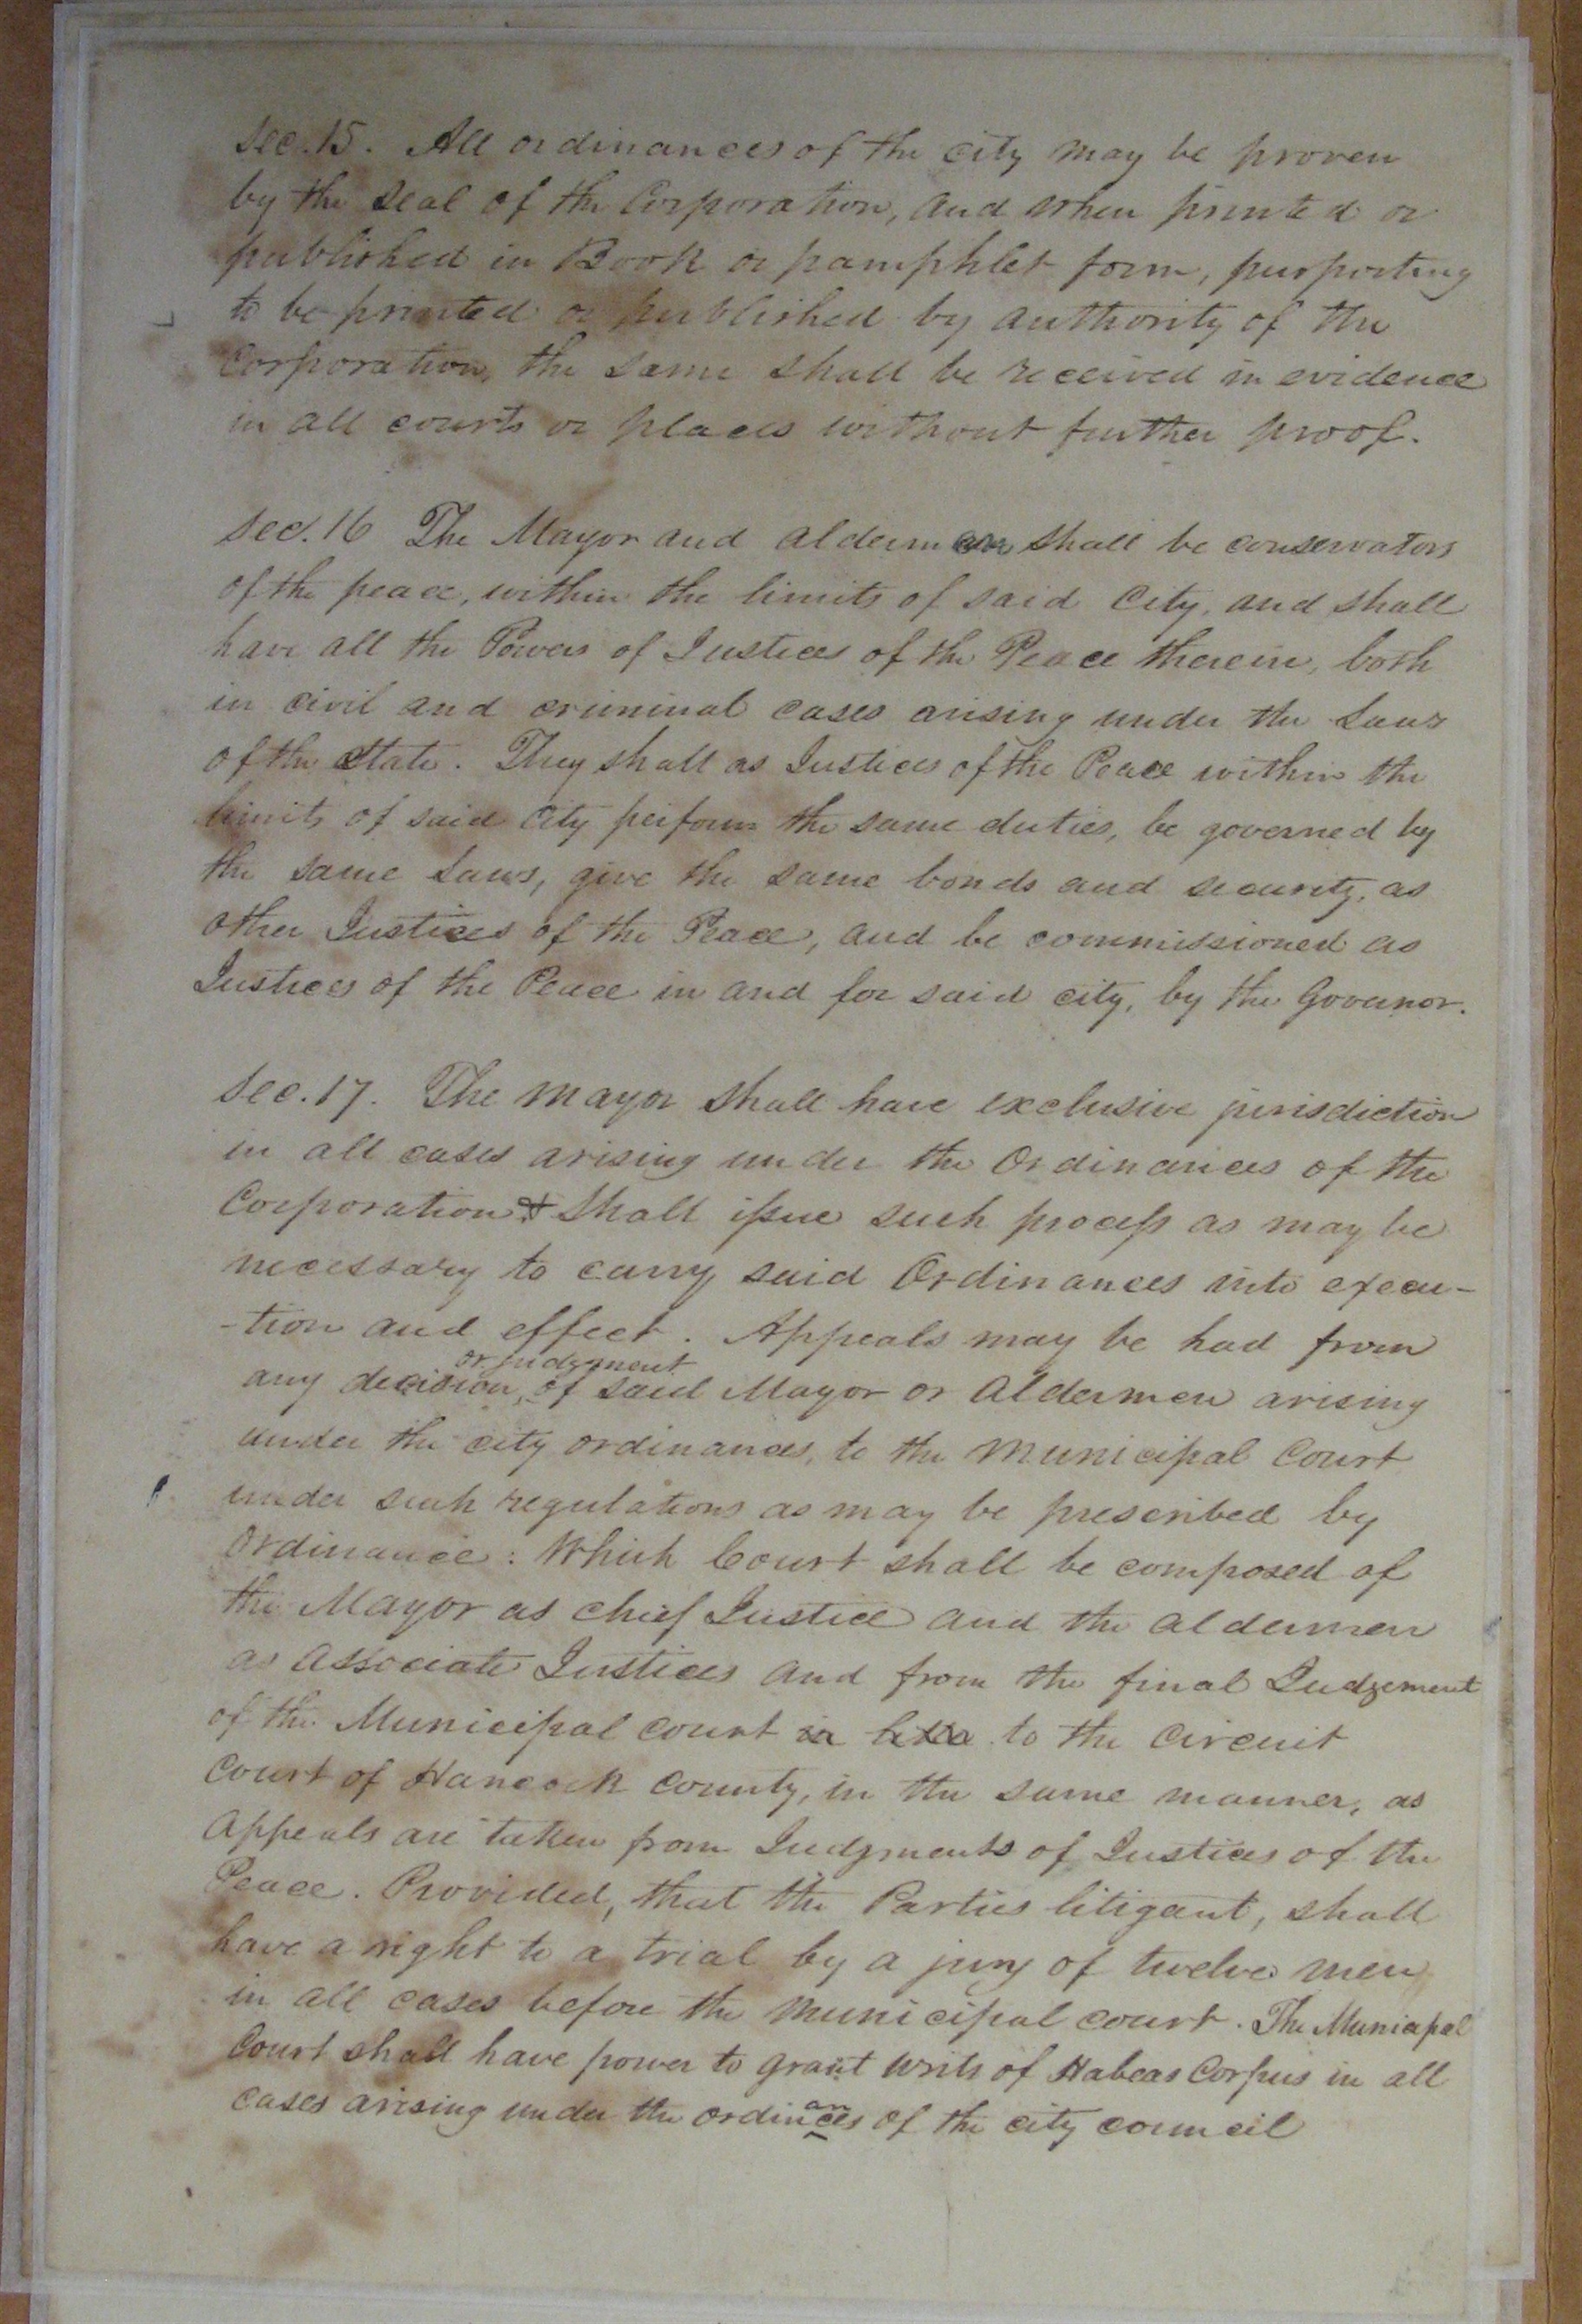 Sec. 15. All ordinances of the city may be proven
by the seal of the Corporation, and when printed or
published in Book or pamphlet form, purporting
to be printed or published by authority of the
Corporation, the same shall be received in evidence
in all courts or places without further proof.
Sec. 16 The Mayor and aldermen shall be conservators
of the peace, within the limits of said City, and shall
have all the Powers of Justices of the Peace therein, both
in civil and criminal cases arising under the Laws
of the State. They shall as Justices of the Peace within the
limits of said City perform the same duties, be governed by
the same Laws, give the same bonds and security, as
other Justices of the Peace, and be commissioned as
Justices of the Peace in and for said city, by the Govenor.
Sec. 17. The Mayor shall have exclusive jurisdiction
in all cases arising under the Ordinances of the
Corporation & shall issue such process as may be
necessary to carry said Ordinances into execu-
-tion and effect. Appeals may be had from
any decision, or judgment of said Mayor or Aldermen arising
under the city ordinances, to the Municipal Court
under such regulations as may be prescribed by
ordinance: Which Court shall be composed of
the Mayor as chief Justice and the aldermen
as Associate Justices and from the final Judgement
of the Municipal court to the Circuit
Court of Hancock County, in the same manner, as
Appeals are taken from Judgments of Justices of the
Peace. Provided, that the Parties litigant, shall
have a right to a trial by a jury of twelve men
in all cases before the Municipal court. The Municipal
Court shall have power to grant writs of Habeas Corpus in all
cases arising under the ordinances of the city council